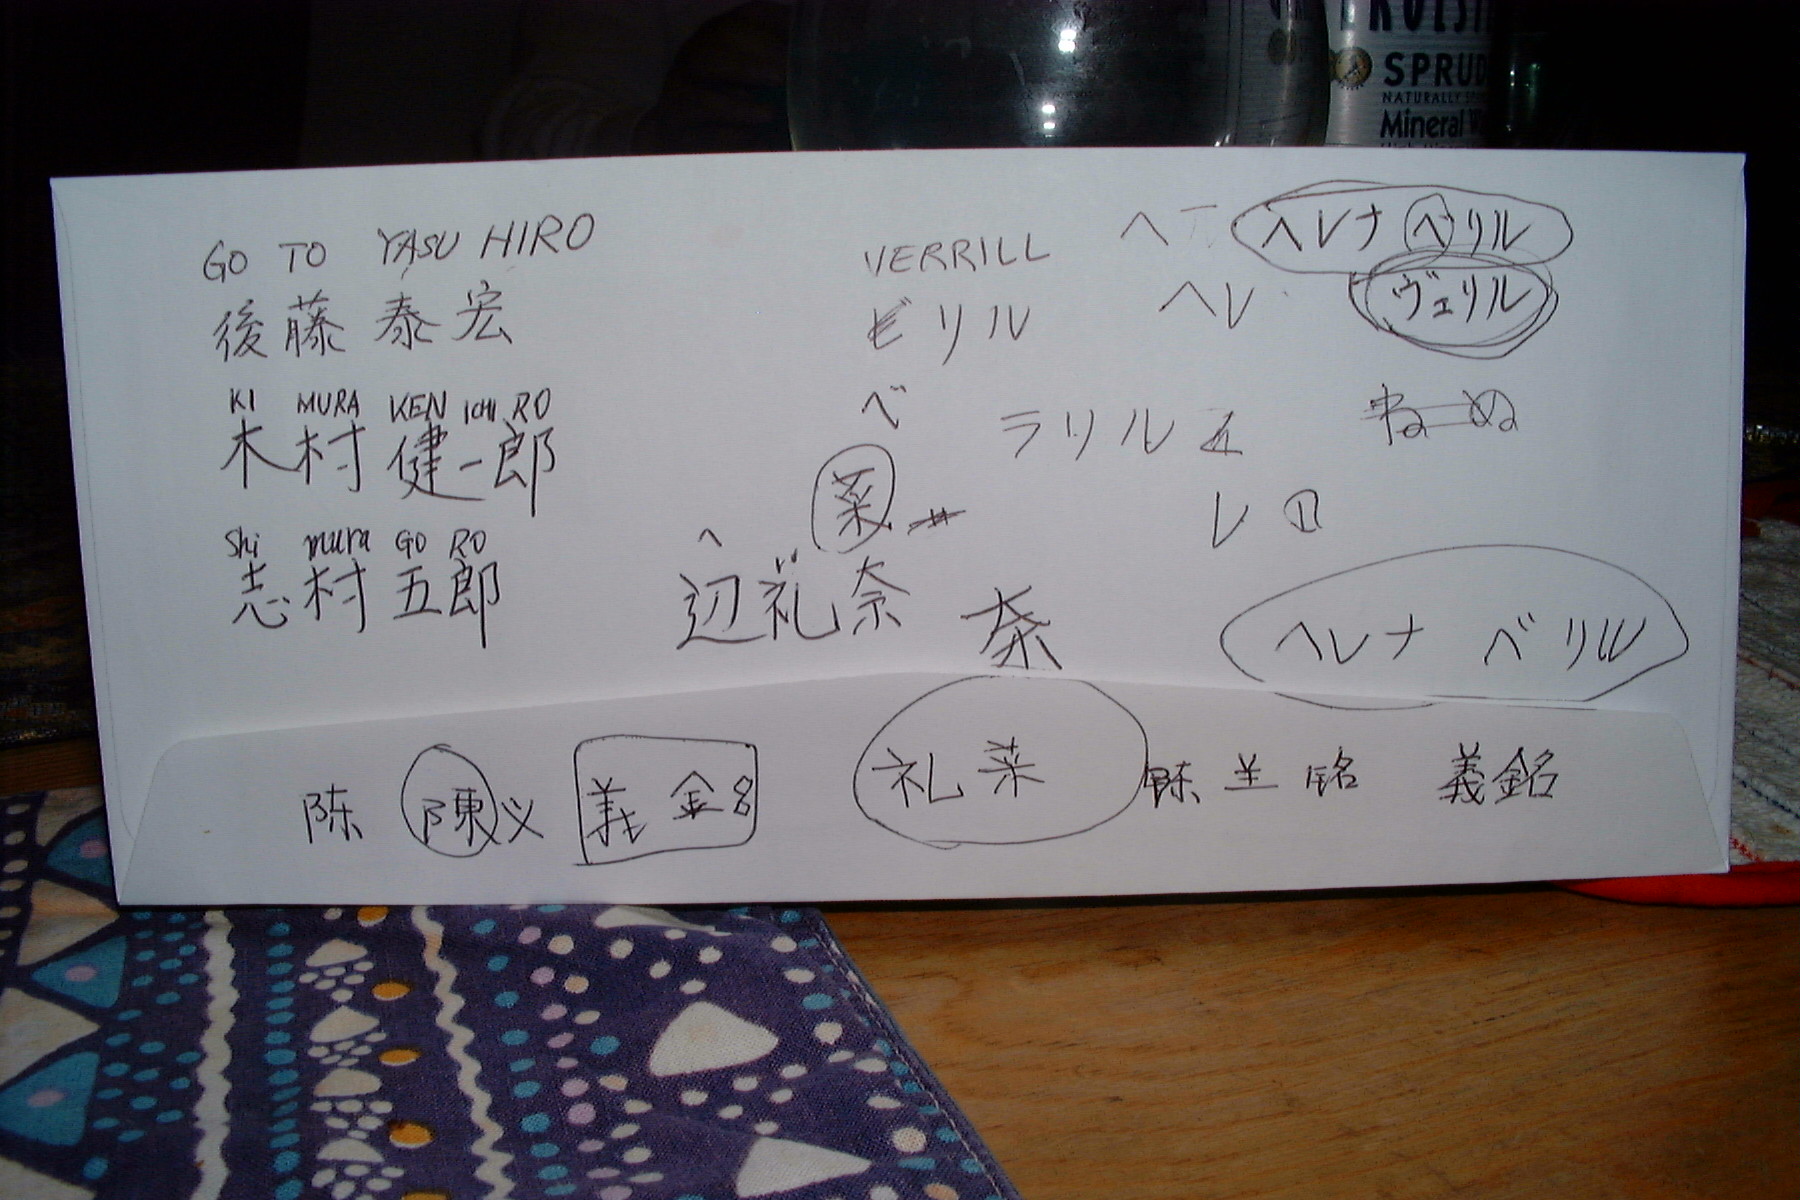 SPRUD
NATURALLY
Mineral
GO TO YASU HIRO
後藤 泰宏
KI MURA KEN ICHI RO
木村 健一郎
Shi mura GO RO
志村 五郎
VERRILL
ビリル
ベ
菜
ヘ
辺礼奈
奈
ヘ
ヘレナ ベリル
ヘレ
ヴェリル
ラリルエ
ねーぬ
レロ
ヘレナ ベリル
陈 陳义 義銘
礼菜
陈 羊 铭 義銘